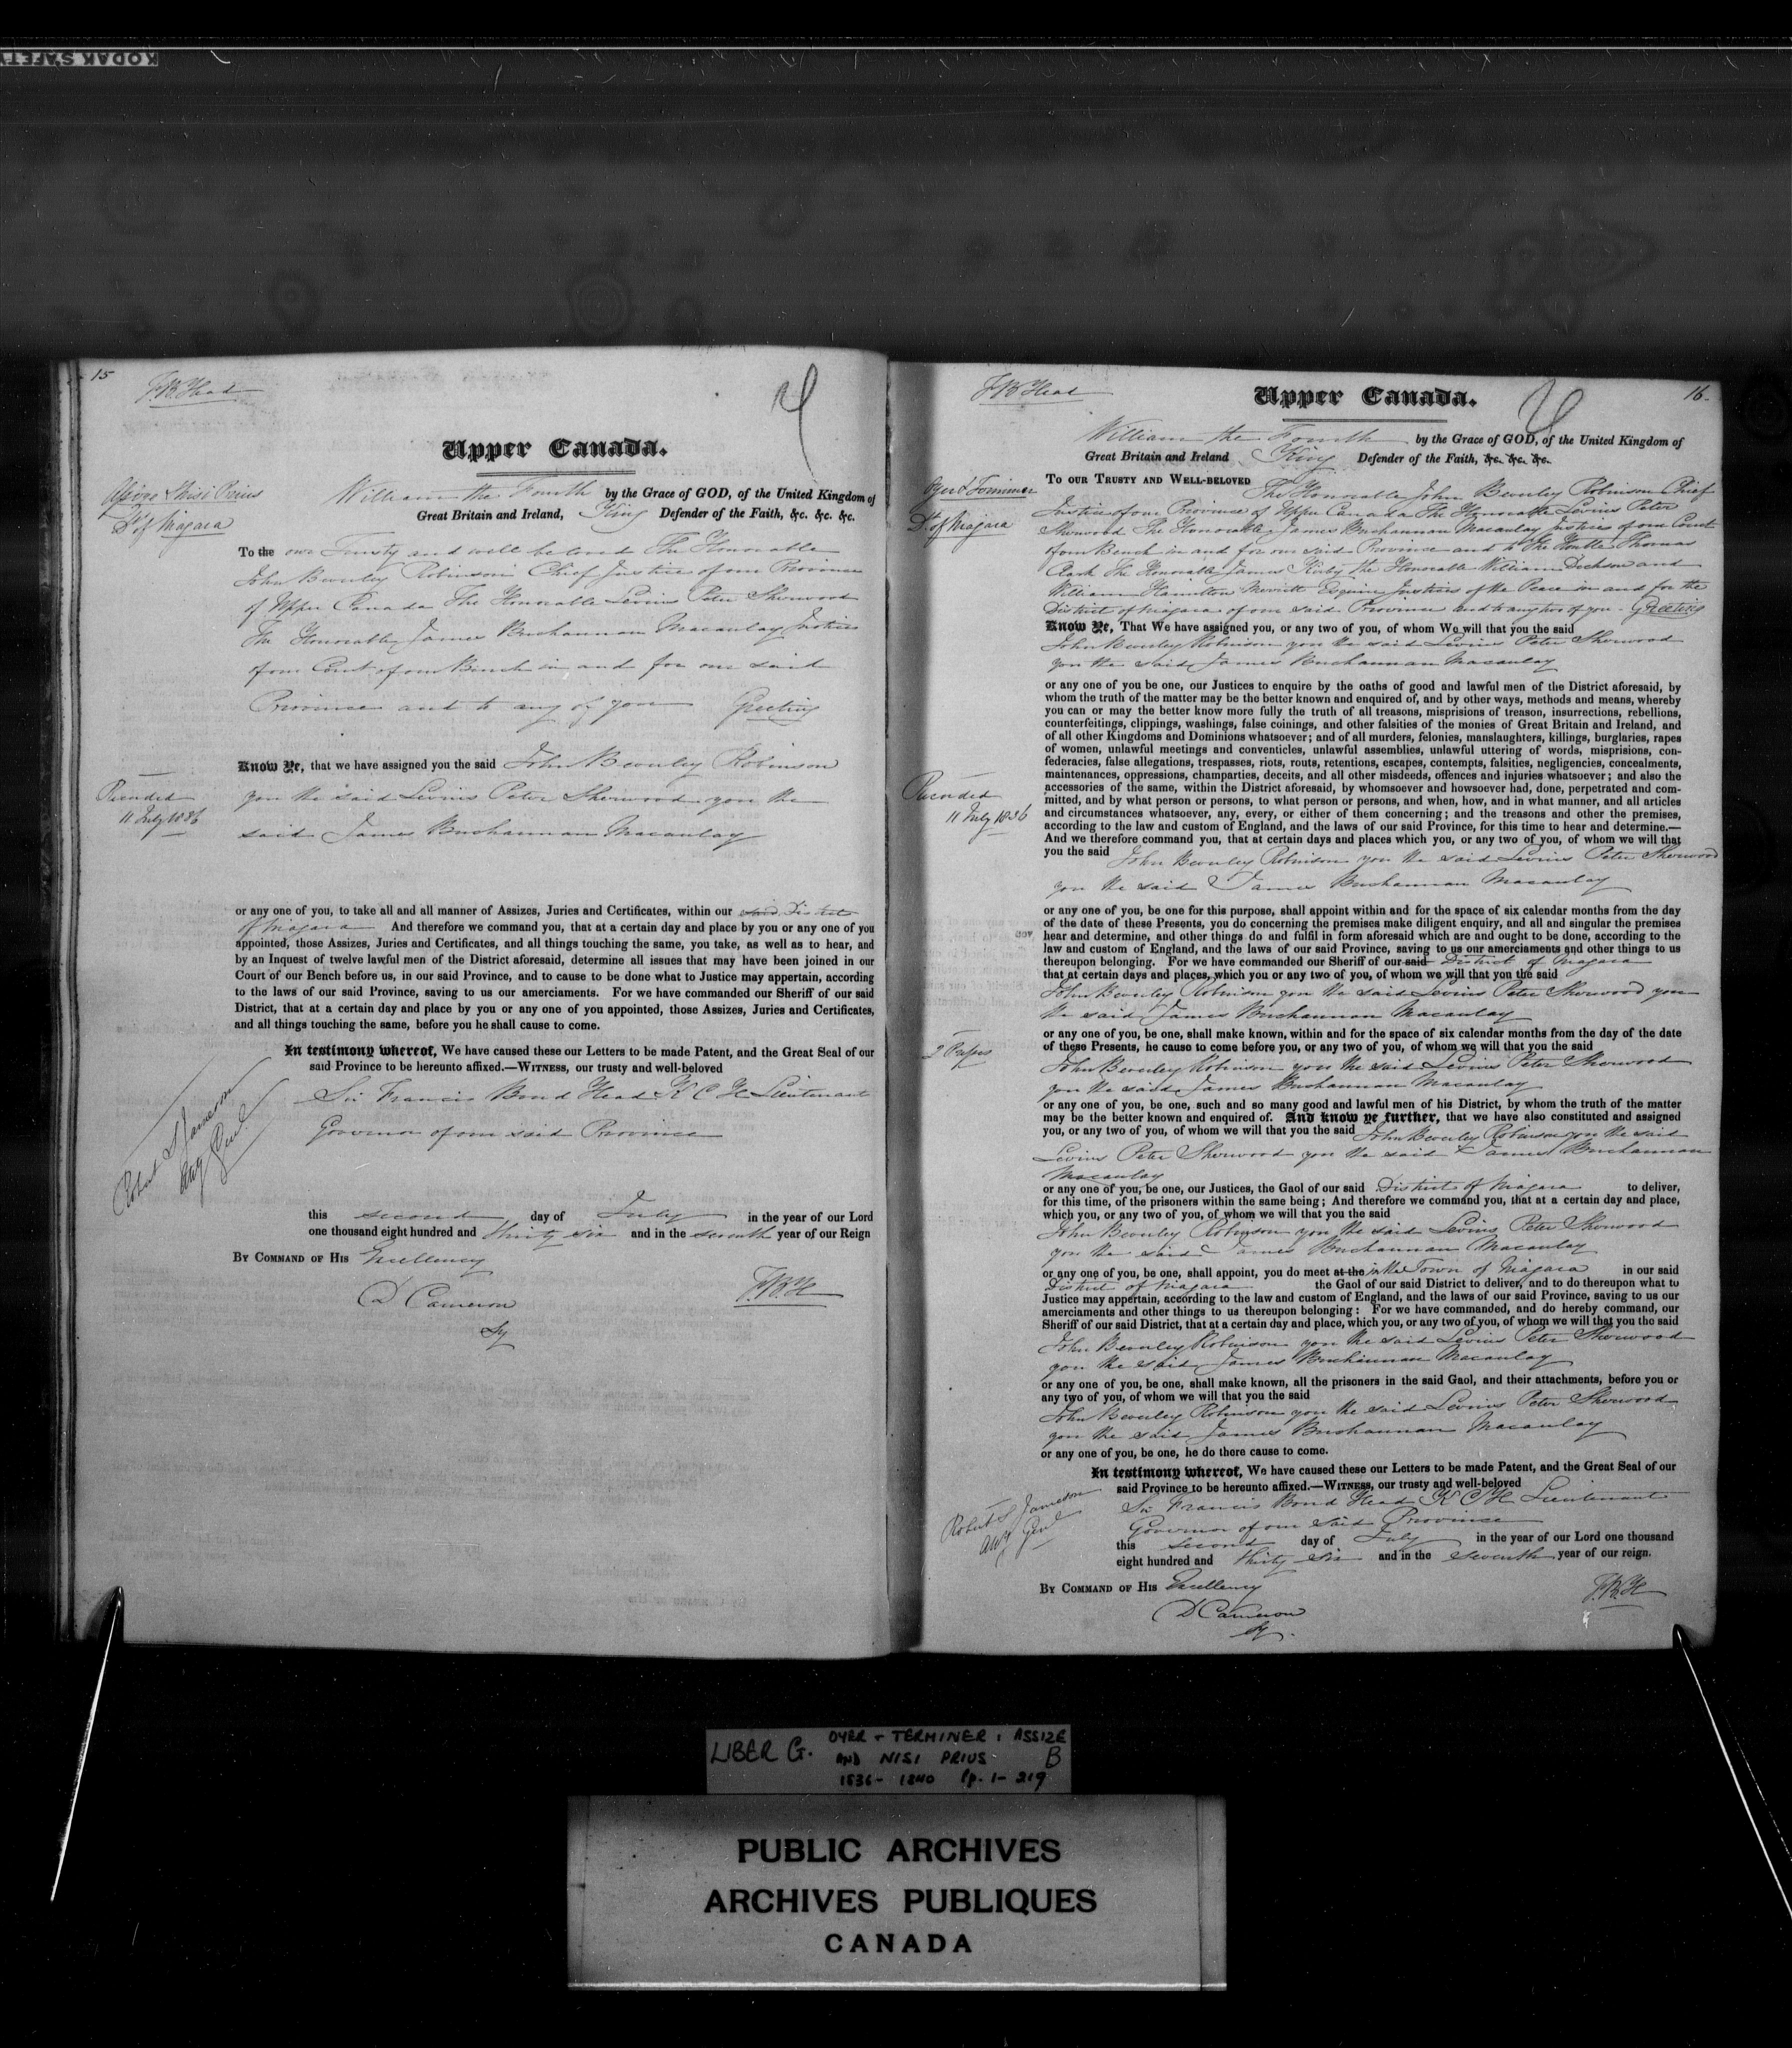 KODAK SAFETY
15
F.B. Head
Upper Canada.
Assize & Nisi Prius
Dt. of Niagara
William the Fourth by the Grace of GOD, of the United Kingdom of
Great Britain and Ireland, King Defender of the Faith, &c. &c. &c.
To the our Trusty and well beloved The Honorable
John Beverley Robinson Chief Justice of our Province
of Upper Canada The Honorable Levius Peter Sherwood
The Honorable James Buchannan Macaulay Justices
of our Court of our Bench in and for our said
Province and to any of you Greeting
Know Ye, that we have assigned you the said John Beverley Robinson
Recorded
11 July 1836
you the said Levius Peter Sherwood you the
said James Buchannan Macaulay
or any one of you, to take all and all manner of Assizes, Juries and Certificates, within our said District
of Niagara And therefore we command you, that at a certain day and place by you or any one of you
appointed, those Assizes, Juries and Certificates, and all things touching the same, you take, as well as to hear, and
by an Inquest of twelve lawful men of the District aforesaid, determine all issues that may have been joined in our
Court of our Bench before us, in our said Province, and to cause to be done what to Justice may appertain, according
to the laws of our said Province, saving to us our amerciaments. For we have commanded our Sheriff of our said
District, that at a certain day and place by you or any one of you appointed, those Assizes, Juries and Certificates,
and all things touching the same, before you he shall cause to come.
In testimony whereof, We have caused these our Letters to be made Patent, and the Great Seal of our
said Province to be hereunto affixed.—WITNESS, our trusty and well-beloved
Sir Francis Bond Head K C H Lieutenant
Governor of our said Province
Robert S Jameson
Atty Genl
this second day of July in the year of our Lord
one thousand eight hundred and thirty six and in the seventh year of our Reign
BY COMMAND OF HIS Excellency
D Cameron
Sy
F.B.H
16.
F.B. Head
Upper Canada.
William the Fourth by the Grace of GOD, of the United Kingdom of
Great Britain and Ireland King Defender of the Faith, &c. &c. &c.
Oyer & Terminer
Dt. of Niagara
TO OUR TRUSTY AND WELL-BELOVED The Honorable John Beverley Robinson Chief
Justice of our Province of Upper Canada The Honorable Levius Peter
Sherwood The Honorable James Buchannan Macaulay Justices of our Court
of our Bench in and for our said Province and to the Honble Thomas
Clark The Honorable James Kirby the Honorable William Dickson and
William Hamilton Merritt Esquire Justices of the Peace in and for the
District of Niagara of our said Province and to any two of you - Greeting
Know Ye, That We have assigned you, or any two of you, of whom We will that you the said
John Beverley Robinson you the said Levius Peter Sherwood
you the said James Buchannan Macaulay
or any one of you be one, our Justices to enquire by the oaths of good and lawful men of the District aforesaid, by
whom the truth of the matter may be the better known and enquired of, and by other ways, methods and means, whereby
you can or may the better know more fully the truth of all treasons, misprisions of treason, insurrections, rebellions,
counterfeitings, clippings, washings, false coinings, and other falsities of the monies of Great Britain and Ireland, and
of all other Kingdoms and Dominions whatsoever; and of all murders, felonies, manslaughters, killings, burglaries, rapes
of women, unlawful meetings and conventicles, unlawful assemblies, unlawful uttering of words, misprisions, con-
federacies, false allegations, trespasses, riots, routs, retentions, escapes, contempts, falsities, negligencies, concealments,
maintenances, oppressions, champarties, deceits, and all other misdeeds, offences and injuries whatsoever; and also the
accessories of the same, within the District aforesaid, by whomsoever and howsoever had, done, perpetrated and com-
mitted, and by what person or persons, to what person or persons, and when, how, and in what manner, and all articles
and circumstances whatsoever, any, every, or either of them concerning; and the treasons and other the premises,
according to the law and custom of England, and the laws of our said Province, for this time to hear and determine.—
And we therefore command you, that at certain days and places which you, or any two of you, of whom we will that
Recorded
11 July 1836
you the said John Beverley Robinson you the said Levius Peter Sherwood
you the said James Buchannan Macaulay
or any one of you, be one for this purpose, shall appoint within and for the space of six calendar months from the day
of the date of these Presents, you do concerning the premises make diligent enquiry, and all and singular the premises
hear and determine, and other things do and fulfil in form aforesaid which are and ought to be done, according to the
law and custom of England, and the laws of our said Province, saving to us our amerciaments and other things to us
thereupon belonging. For we have commanded our Sheriff of our said District of Niagara
that at certain days and places, which you or any two of you, of whom we will that you the said
John Beverley Robinson you the said Levius Peter Sherwood you
the said James Buchannan Macaulay
or any one of you, be one, shall make known, within and for the space of six calendar months from the day of the date
of these Presents, he cause to come before you, or any two of you, of whom we will that you the said
John Beverley Robinson you the said Levius Peter Sherwood
you the said James Buchannan Macaulay
or any one of you, be one, such and so many good and lawful men of his District, by whom the truth of the matter
may be the better known and enquired of. And know ye further, that we have also constituted and assigned
you, or any two of you, of whom we will that you the said John Beverley Robinson you the said
Levius Peter Sherwood you the said James Buchannan
Macaulay
or any one of you, be one, our Justices, the Gaol of our said District of Niagara to deliver,
for this time, of the prisoners within the same being; And therefore we command you, that at a certain day and place,
which you, or any two of you, of whom we will that you the said
John Beverley Robinson you the said Levius Peter Sherwood
you the said James Buchannan Macaulay
or any one of you, be one, shall appoint, you do meet at the in the Town of Niagara in our said
District of Niagara the Gaol of our said District to deliver, and to do thereupon what to
Justice may appertain, according to the law and custom of England, and the laws of our said Province, saving to us our
amerciaments and other things to us thereupon belonging: For we have commanded, and do hereby command, our
Sheriff of our said District, that at a certain day and place, which you, or any two of you, of whom we will that you the said
John Beverley Robinson you the said Levius Peter Sherwood
you the said James Buchannan Macaulay
or any one of you, be one, shall make known, all the prisoners in the said Gaol, and their attachments, before you or
any two of you, of whom we will that you the said
John Beverley Robinson you the said Levius Peter Sherwood
you the said James Buchannan Macaulay
or any one of you, be one, he do there cause to come.
In testimony whereof, We have caused these our Letters to be made Patent, and the Great Seal of our
said Province to be hereunto affixed.—WITNESS, our trusty and well-beloved
Sir Francis Bond Head K C H Lieutenant
Governor of our said Province
Robert S Jameson
Atty Genl
this second day of July in the year of our Lord one thousand
eight hundred and thirty six and in the seventh year of our reign.
BY COMMAND OF HIS Excellency
D Cameron
Sy.
F.B.H
LIBER G. OYER + TERMINER : ASSIZE
AND NISI PRIUS B
1836 - 1840 Pp. 1 - 219
PUBLIC ARCHIVES
ARCHIVES PUBLIQUES
CANADA